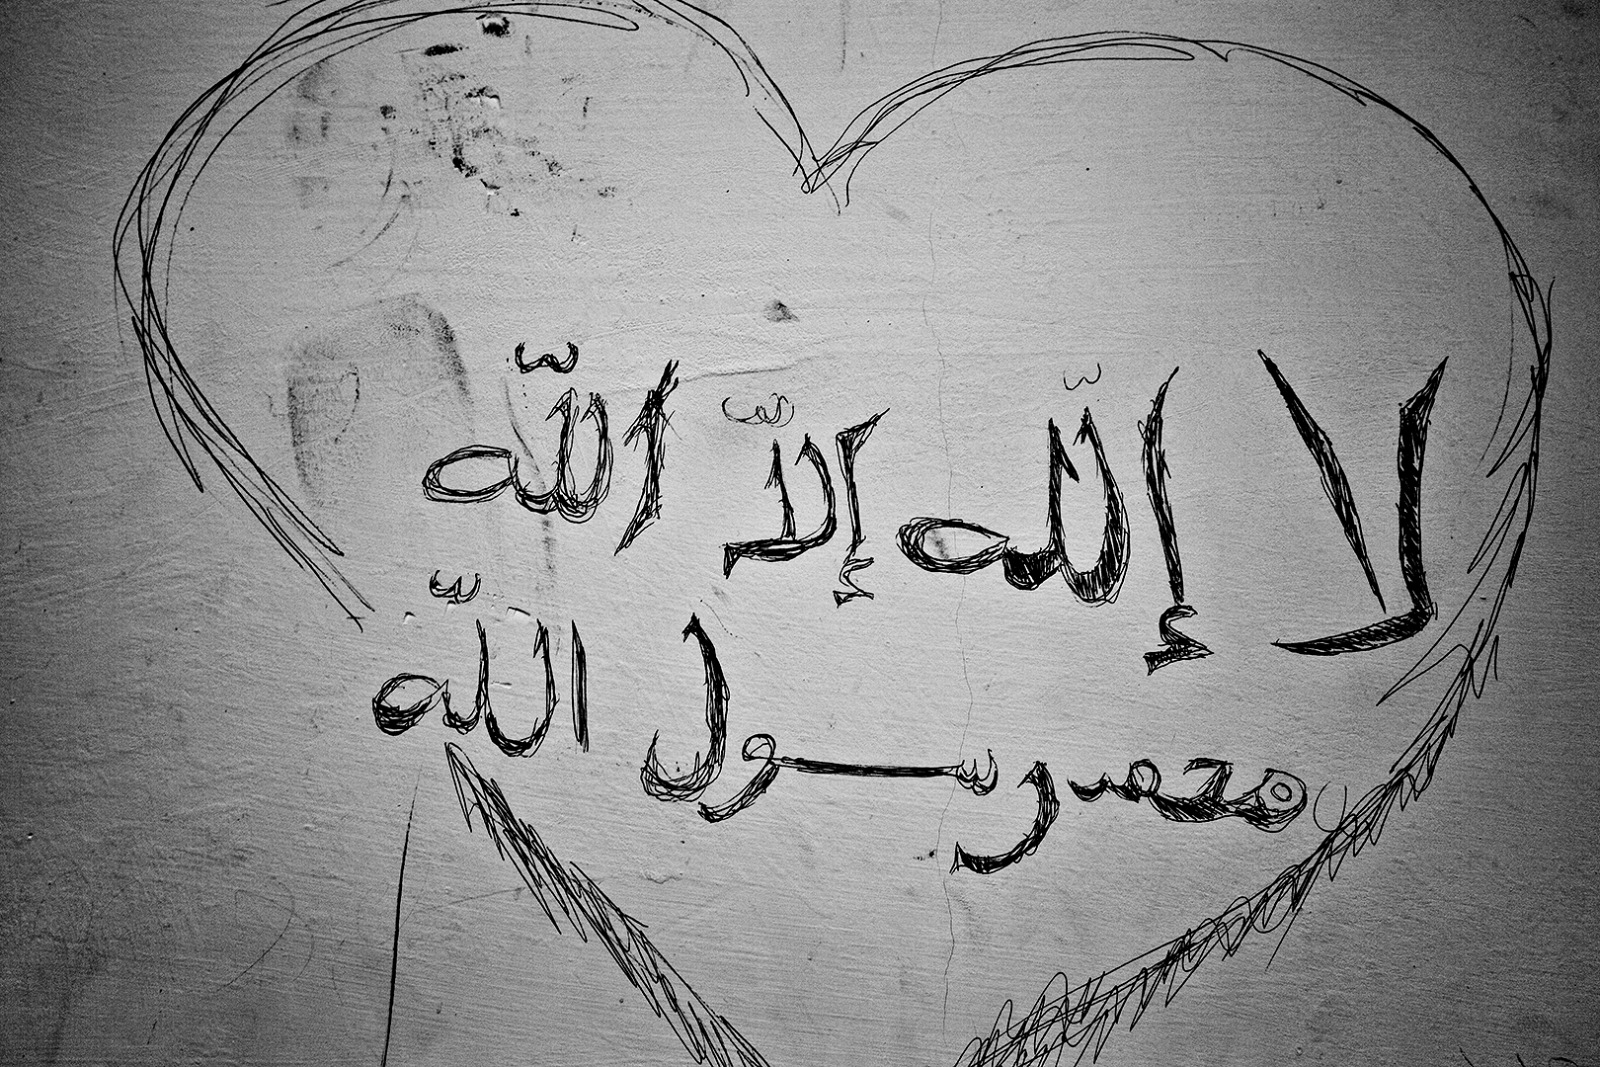 لا إلله إلّا اللّه
محمد رسول اللّه